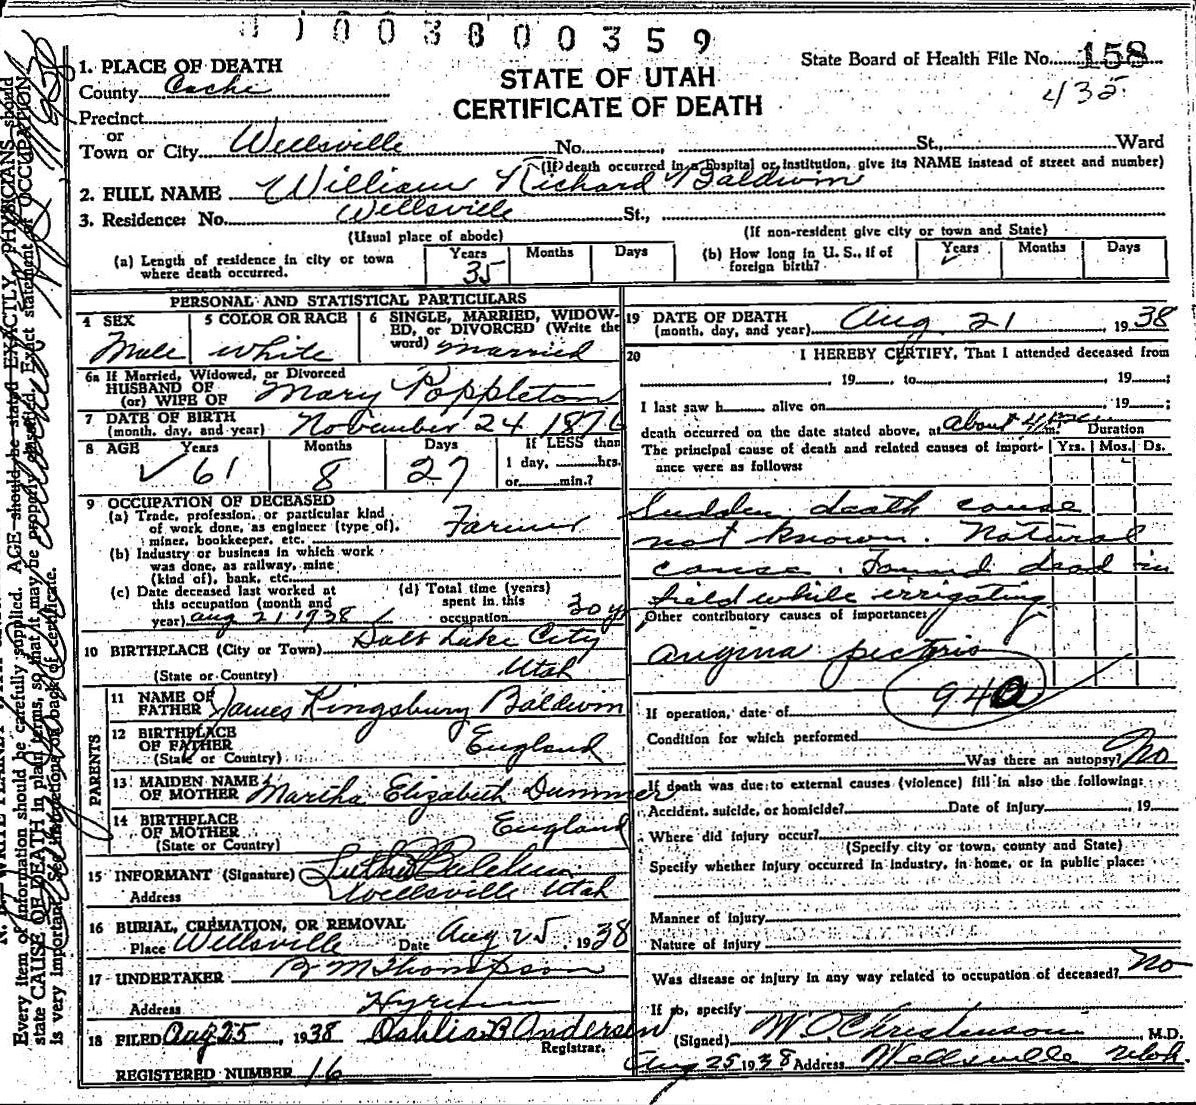 1003800359
State Board of Health File No. 158
435
STATE OF UTAH
CERTIFICATE OF DEATH
1. PLACE OF DEATH
County Cache
Precinct
or
Town or City Wellsville No. St., Ward
(If death occurred in a hospital or institution, give its NAME instead of street and number)
2. FULL NAME William Richard Baldwin
3. Residence: No. Wellsville St.,
(Usual place of abode) (If non-resident give city or town and State)
(a) Length of residence in city or town where death occurred. Years 35 Months Days
(b) How long in U. S., if of foreign birth? Years Months Days
PERSONAL AND STATISTICAL PARTICULARS
4 SEX Male
5 COLOR OR RACE White
6 SINGLE, MARRIED, WIDOWED, or DIVORCED (Write the word) Married
6a If Married, Widowed, or Divorced
HUSBAND OF
(or) WIFE OF Mary Poppleton
7 DATE OF BIRTH
(month, day, and year) November 24 1876
8 AGE Years 61 Months 8 Days 27 If LESS than
1 day, hrs.
or min.?
9 OCCUPATION OF DECEASED
(a) Trade, profession, or particular kind
of work done, as engineer (type of),
miner, bookkeeper, etc. Farmer
(b) Industry or business in which work
was done, as railway, mine
(kind of), bank, etc.
(c) Date deceased last worked at
this occupation (month and
year) Aug 21 1938
(d) Total time (years)
spent in this
occupation 30 yr
10 BIRTHPLACE (City or Town) Salt Lake City
(State or Country) Utah
PARENTS
11 NAME OF
FATHER James Kingsbury Baldwin
12 BIRTHPLACE
OF FATHER England
(State or Country)
13 MAIDEN NAME
OF MOTHER Martha Elizabeth Dummer
14 BIRTHPLACE
OF MOTHER England
(State or Country)
15 INFORMANT (Signature)
Address Wellsville Utah
16 BURIAL, CREMATION, OR REMOVAL
Place Wellsville Date Aug 25, 1938
17 UNDERTAKER B M Thompson
Address Hyrum
18 FILED Aug 25, 1938 Dahlia B Anderson
Registrar.
REGISTERED NUMBER 16
19 DATE OF DEATH
(month, day, and year) Aug. 21 1938
20 I HEREBY CERTIFY, That I attended deceased from
, 19 , to , 19 ;
I last saw h alive on , 19 ;
death occurred on the date stated above, at about 4 p m.
Duration
The principal cause of death and related causes of importance were as follows: Yrs. Mos. Ds.
Sudden death cause
not known. Natural
cause. Found dead in
field while irrigating
Other contributory causes of importance:
angina pectoris
94a
If operation, date of
Condition for which performed
Was there an autopsy? No
If death was due to external causes (violence) fill in also the following:
Accident, suicide, or homicide? Date of injury , 19
Where did injury occur?
(Specify city or town, county and State)
Specify whether injury occurred in industry, in home, or in public place:
Manner of injury
Nature of injury
Was disease or injury in any way related to occupation of deceased? No
If so, specify
(Signed) W. O. Christenson, M.D.
Aug 25 1938 Address Wellsville Utah
Every item of information should be carefully supplied. AGE should be stated EXACTLY. PHYSICIANS should
state CAUSE OF DEATH in plain terms, so that it may be properly classified. Exact statement of OCCUPATION
is very important. See instructions on back of certificate.